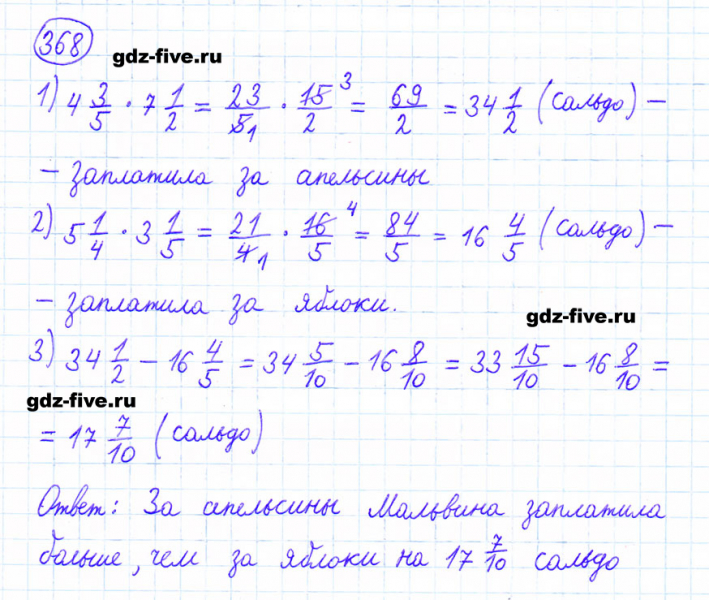 368
gdz-five.ru
1) 4 3/5 · 7 1/2 = 23/5 1 · 15/2 3 = 69/2 = 34 1/2 (сальдо) –
– заплатила за апельсины
2) 5 1/4 · 3 1/5 = 21/4 1 · 16/5 4 = 84/5 = 16 4/5 (сальдо) –
– заплатила за яблоки.
gdz-five.ru
3) 34 1/2 – 16 4/5 = 34 5/10 – 16 8/10 = 33 15/10 – 16 8/10 =
gdz-five.ru
= 17 7/10 (сальдо)
Ответ: За апельсины Мальвина заплатила
больше, чем за яблоки на 17 7/10 сальдо